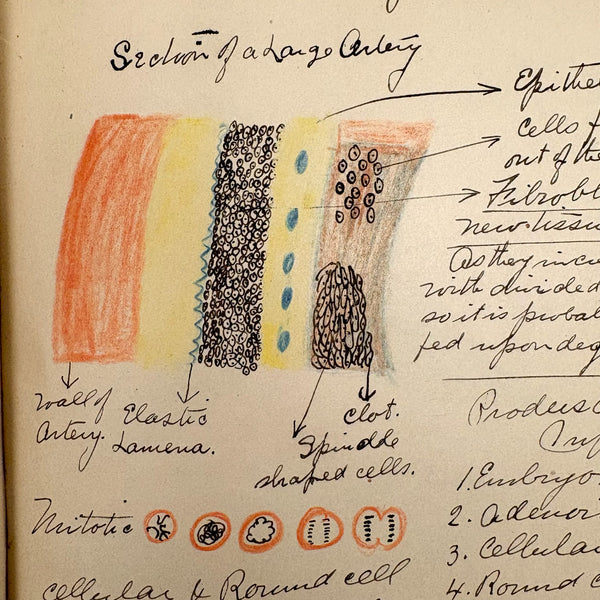 Section of a Large Artery
Epithe
cells f
out of the
Fibrobl
new tissu
As they incre
with divided
so it is probab
fed upon deg
wall of
Artery.
Elastic
Lamena.
clot.
Spindle
shaped cells.
Produc
Inf
1. Embryo
2. adenoi
3. Cellula
4. Round c
Mitotic
Cellular & Round cell